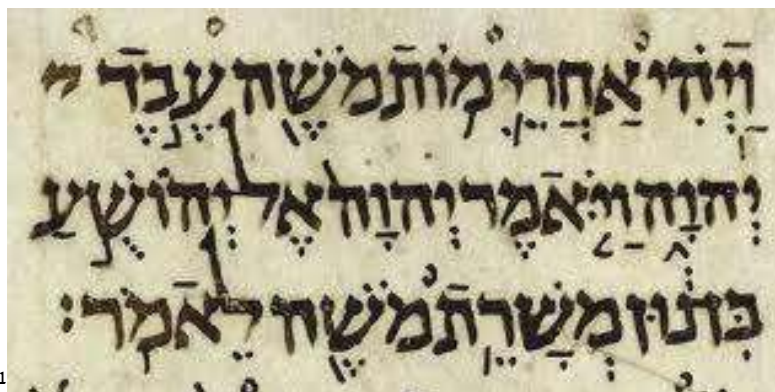 וַיְהִ֗י אַחֲרֵ֛י מ֥וֹת מֹשֶׁ֖ה עֶ֣בֶד
יְהוָ֑ה וַיֹּ֤אמֶר יְהוָה֙ אֶל יְהוֹשֻׁ֣עַ
בִּן נ֔וּן מְשָׁרֵ֥ת מֹשֶׁ֖ה לֵאמֹֽר׃
1